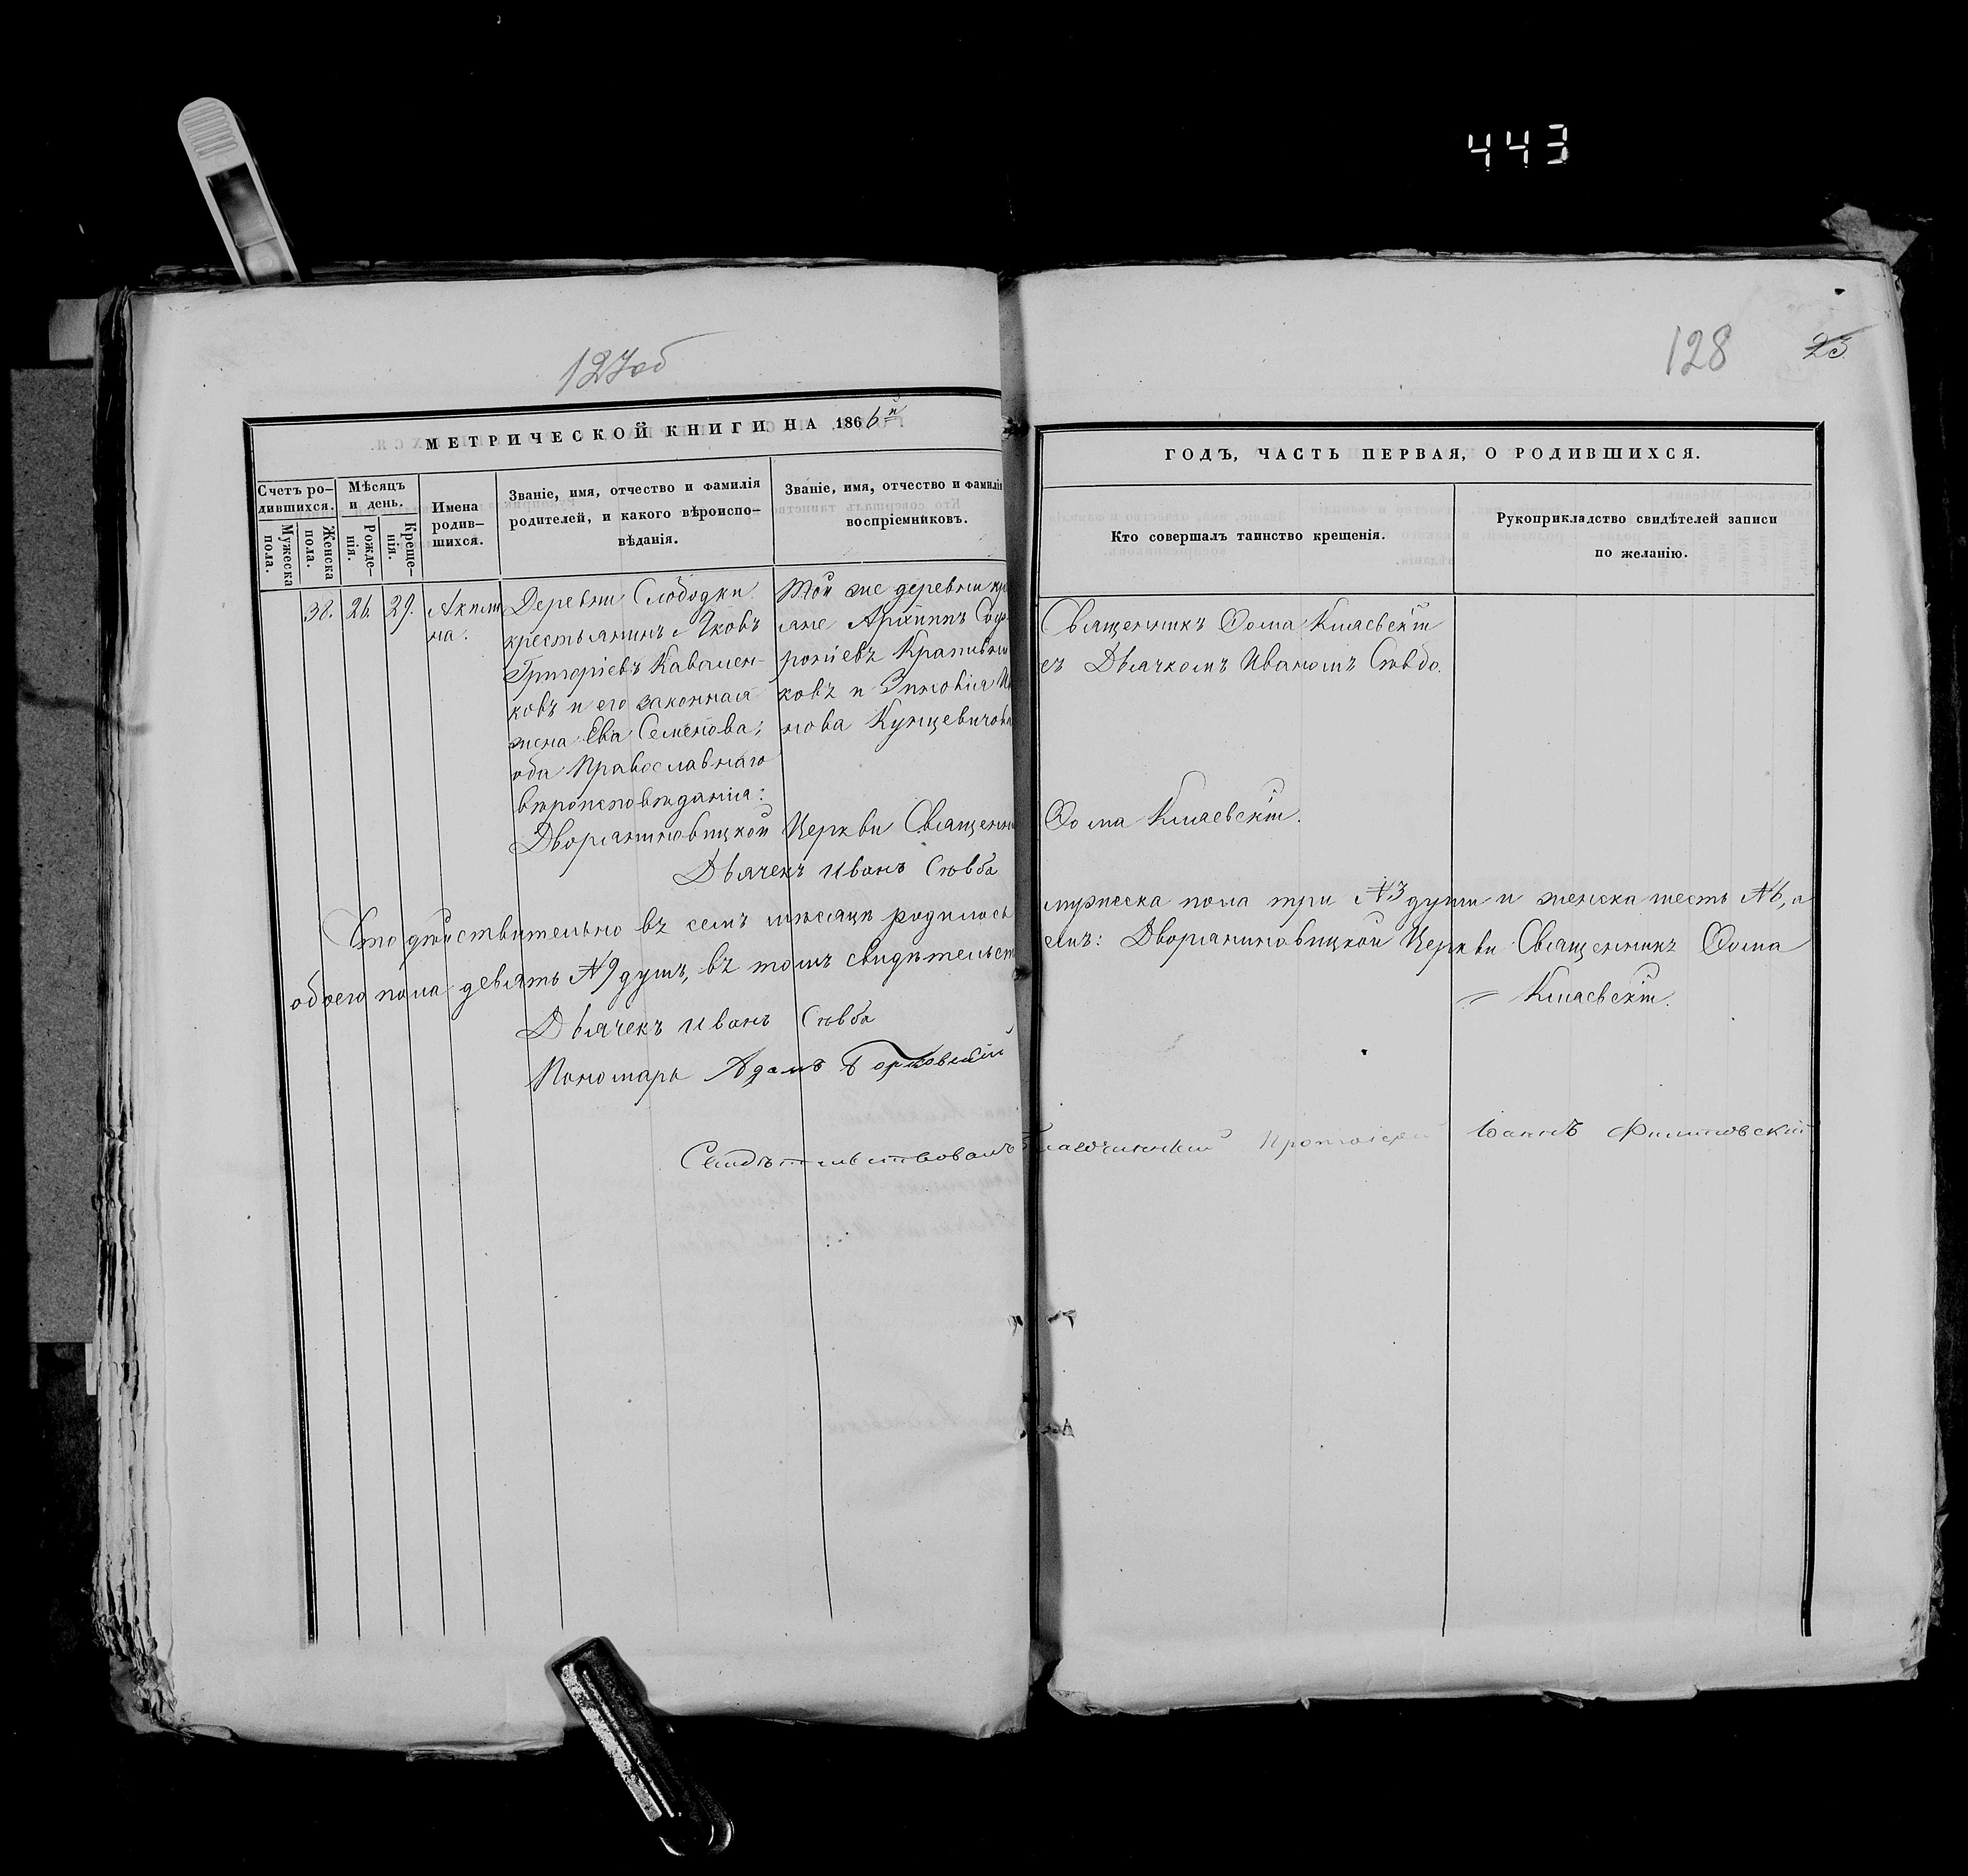 443
127об
128
25
МЕТРИЧЕСКОЙ КНИГИ НА 1866й
ГОДЪ, ЧАСТЬ ПЕРВАЯ, О РОДИВШИХСЯ.
Счетъ ро-
дившихся.
Мужеска
пола.
Женска
пола.
Мѣсяцъ
и день.
Рожде-
нія.
Креще-
нія.
Имена
родив-
шихся.
Званіе, имя, отчество и фамилія
родителей, и какого вѣроиспо-
вѣданія.
Званіе, имя, отчество и фамилія
воспріемниковъ.
Кто совершалъ таинство крещенія.
Рукоприкладство свидѣтелей записи
по желанію.
38. 26. 29.
Акили
на.
Деревни Слободки
крестьянинъ Яковъ
Григоріевъ Кавален-
ковъ и его законная
жена Ева Семенова;
оба Православнаго
вѣроисповѣданія:
Той же деревни
яне Архиппъ Соф
роніевъ
ковъ и Зиновія
нова Кунцевичова
Священникъ Ѳома Климвскій
съ Дьячкомъ Иваномъ Сѣвбо.
Дворяниновицкой Церкви Священни Ѳома
Дьячекъ Иванъ Сѣвба
Что дѣйствительно въ семъ мѣсяцѣ родилось мужеска пола три №3 души и женска шесть №6, а
обоего пола девять №9 душъ, въ томъ свидѣтельст емъ: Дворяниновицкой Церкви Священникъ Ѳома
Дьячекъ Иванъ Сѣвба
Пономарь Адамъ
Свидѣтельствовалъ Благочинный Протоіерей Іоаннъ